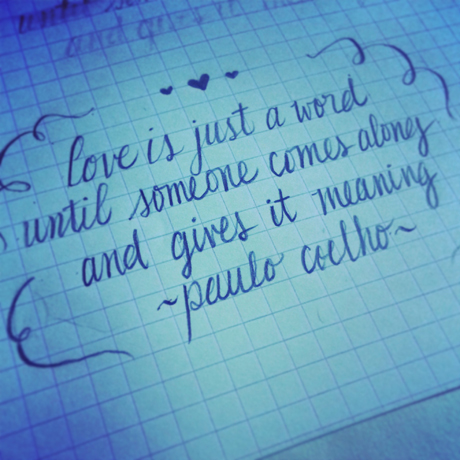 until
and
love is just a word
until someone comes along
and gives it meaning
~paulo coelho~